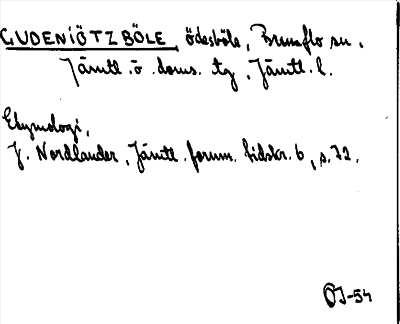 GUDENIÖTZBÖLE, ödesböle, Brunflo sn,
Jämtl. ö. doms. tg, Jämtl. l.
Etymologi,
J. Nordlander, Jämtl. fornm. tidskr. 6, s. 72.
OJ-54